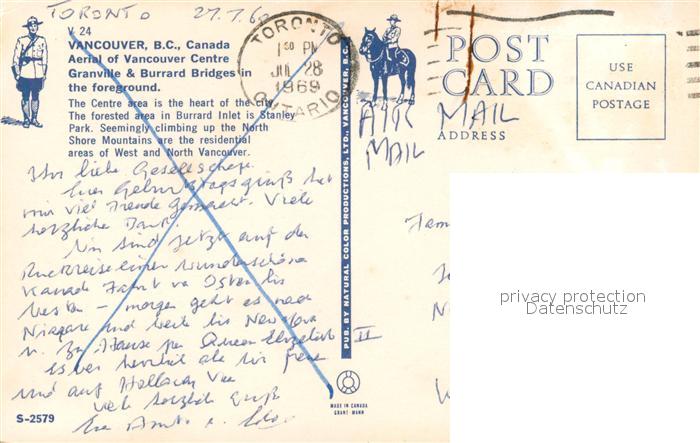 TORONTO 27.7.69
V 24
VANCOUVER, B.C., Canada
Aerial of Vancouver Centre
Granville & Burrard Bridges in
the foreground.
The Centre area is the heart of the city.
The forested area in Burrard Inlet is Stanley
Park. Seemingly climbing up the North
Shore Mountains are the residential
areas of West and North Vancouver.
TORONTO
1 30 PM
JUL 28
1969
ONTARIO
POST
CARD
ADDRESS
USE
CANADIAN
POSTAGE
AIR MAIL
MAIL
Ihr liebe
Euer Geburtstagsgruß hat
mir viel Freude gemacht. Viele
herzliche Dank!
Wir sind jetzt auf der
Rückreise einer wunderschönen
Kanada Fahrt von Osten bis
Westen – morgen geht es nach
Niagara und weiter bis New York
u. zu Hause per Queen Elizabeth II
und auf
viele herzliche Grüße
PUB. BY NATURAL COLOR PRODUCTIONS, LTD., VANCOUVER, B.C.
MADE IN CANADA
GRANT MANN
S-2579
privacy protection
Datenschutz